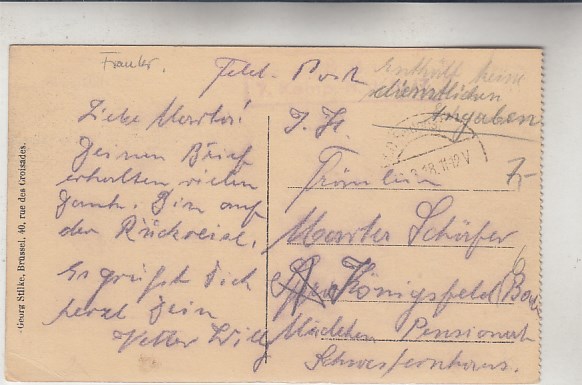 Frankr.
Feld-Post
Enthält keine
dienstlichen
Angaben
Liebe Martha!
Deinen Brief
erhalten vielen
Dank. Bin auf
der Rückreise.
Es grüßt Dich
herzl Dein
Vetter Willy
I. H.
18.11-12V
7,-
Fräulein
Martha Schäfer
Königsfeld (Baden
Mädchen Pensionat
Schwesternhaus.
Georg Stilke, Brüssel, 40, rue des Croisades.